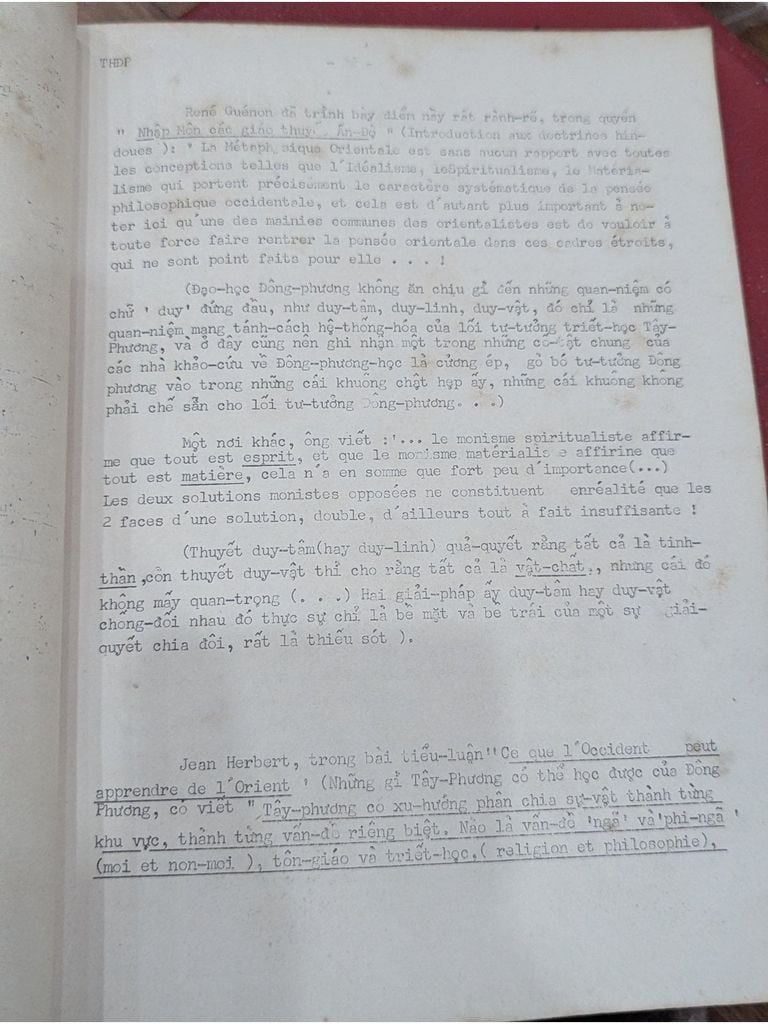 THĐP
René Guénon đã trình bày điểm này rất rành-rẽ, trong quyển
" Nhập Môn các giáo thuyết Ấn-Độ " (Introduction aux doctrines hin-
doues ): ' La Métaph sique Orientale est sans aucun rapport avec toutes
les conceptions telles que l'Idéalisme, leSpiritualisme, le Matéria-
lisme qui portent précisément le caractère systématique de la pensée
philosophique occidentale, et cela est d'autant plus important à no-
ter ici qu'une des mainies communes des orientalistes est de vouloir à
toute force faire rentrer la pensée orientale dans ces cadres étroits,
qui ne sont point faits pour elle . . . !
(Đạo-học Đông-phương không ăn chịu gì đến những quan-niệm có
chữ ' duy' đứng đầu, như duy-tâm, duy-linh, duy-vật, đó chỉ là những
quan-niệm mang tánh-cách hệ-thống-hóa của lối tư-tưởng triết-học Tây-
Phương, và ở đây cũng nên ghi nhận một trong những cố-tật chung của
các nhà khảo-cứu về Đông-phương-học là cưỡng ép, gò bó tư-tưởng Đông
phương vào trong những cái khuông chật hẹp ấy, những cái khuông không
phải chế sẵn cho lối tư-tưởng Đông-phương. . .)
Một nơi khác, ông viết :'... le monisme spiritualiste affir-
me que tout est esprit, et que le monisme matérialis e affirine que
tout est matière, cela n'a en somme que fort peu d'importance(...)
Les deux solutions monistes opposées ne constituent enréalité que les
2 faces d'une solution, double, d'ailleurs tout à fait insuffisante !
(Thuyết duy-tâm(hay duy-linh) quả-quyết rằng tất cả là tinh-
thần ,còn thuyết duy-vật thì cho rằng tất cả là vật-chất,, nhưng cái đó
không mấy quan-trọng (. . .) Hai giải-pháp ấy duy-tâm hay duy-vật
chống-đối nhau đó thực sự chỉ là bề mặt và bề trái của một sự giải-
quyết chia đôi, rất là thiếu sót ).
Jean Herbert, trong bài tiểu-luận"Ce que l'Occident peut
apprendre de l'Orient ' (Những gì Tây-Phương có thể học được của Đông
Phương, có viết " Tây-phương có xu-hướng phân chia sự-vật thành từng
khu vực, thành từng vấn-đề riêng biệt. Nào là vấn-đề 'ngã' và'phi-ngã '
(moi et non-moi ), tôn-giáo và triết-học,( religion et philosophie),